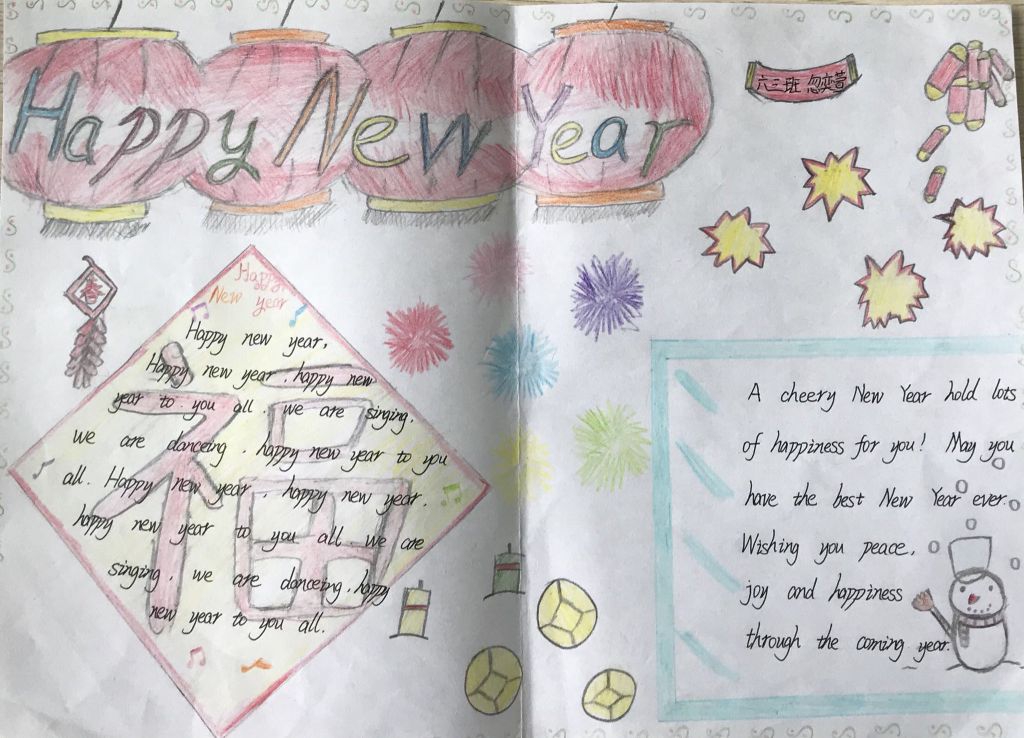 Happy New Year
六三班 忽奕萱
春
福
Happy
New year
Happy new year,
Happy new year, happy new
year to you all. we are singing.
we are danceing, happy new year to you
all. Happy new year, happy new year,
happy new year to you all. We are
singing, we are danceing, happy
new year to you all.
A cheery New Year hold lots
of happiness for you! May you
have the best New Year ever.
Wishing you peace,
joy and happiness
through the coming year.